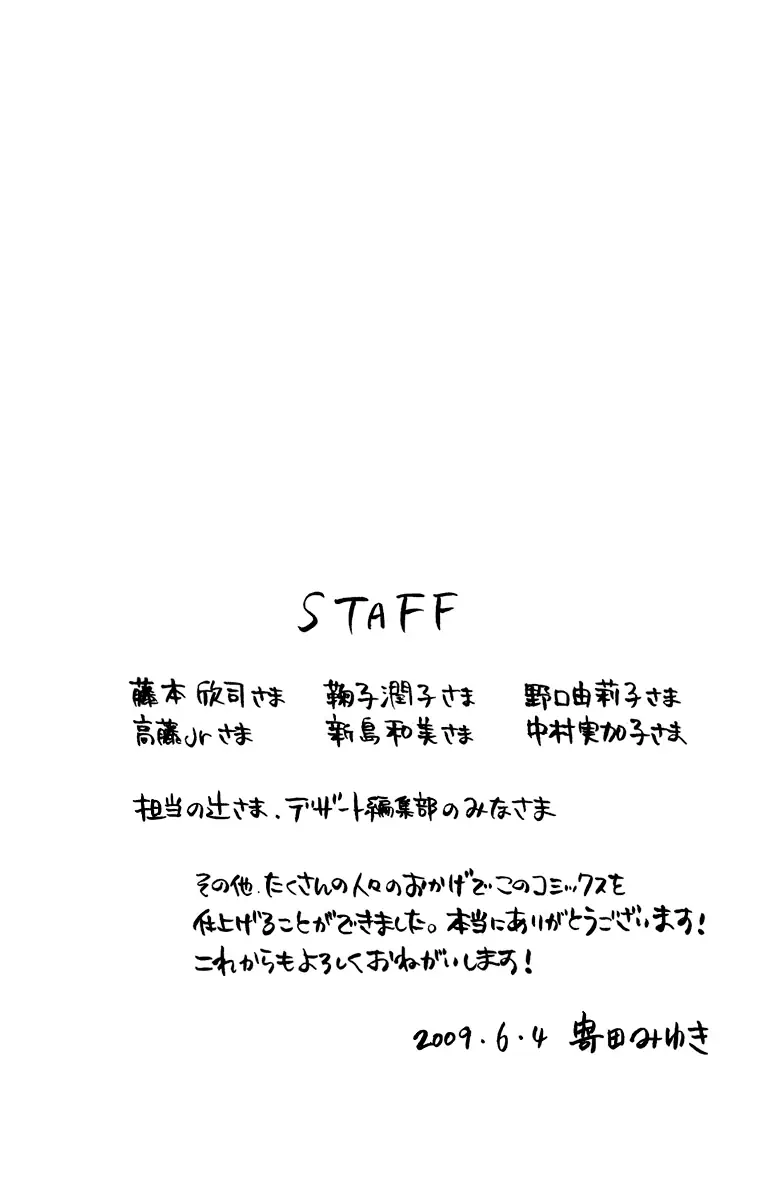 STAFF
藤本欣司さま　鞠子潤子さま　野口由莉子さま
高藤Jrさま　新島和美さま　中村実加子さま
担当の辻さま、デザート編集部のみなさま
その他、たくさんの人々のおかげでこのコミックスを
仕上げることができました。本当にありがとうございます！
これからもよろしくおねがいします！
2009.6.4 寄田みゆき